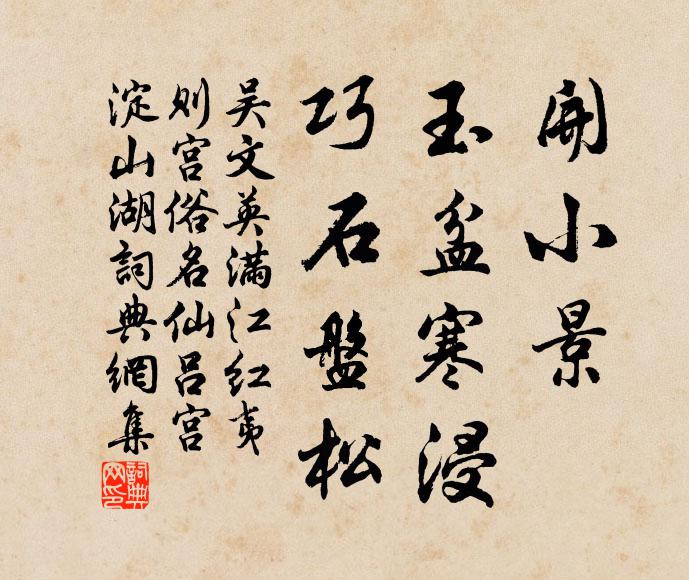 開小景
玉盆寒浸
巧石盤松
吴文英满江红夷
则宫俗名仙吕宫
淀山湖詞典網集
詞典
网印